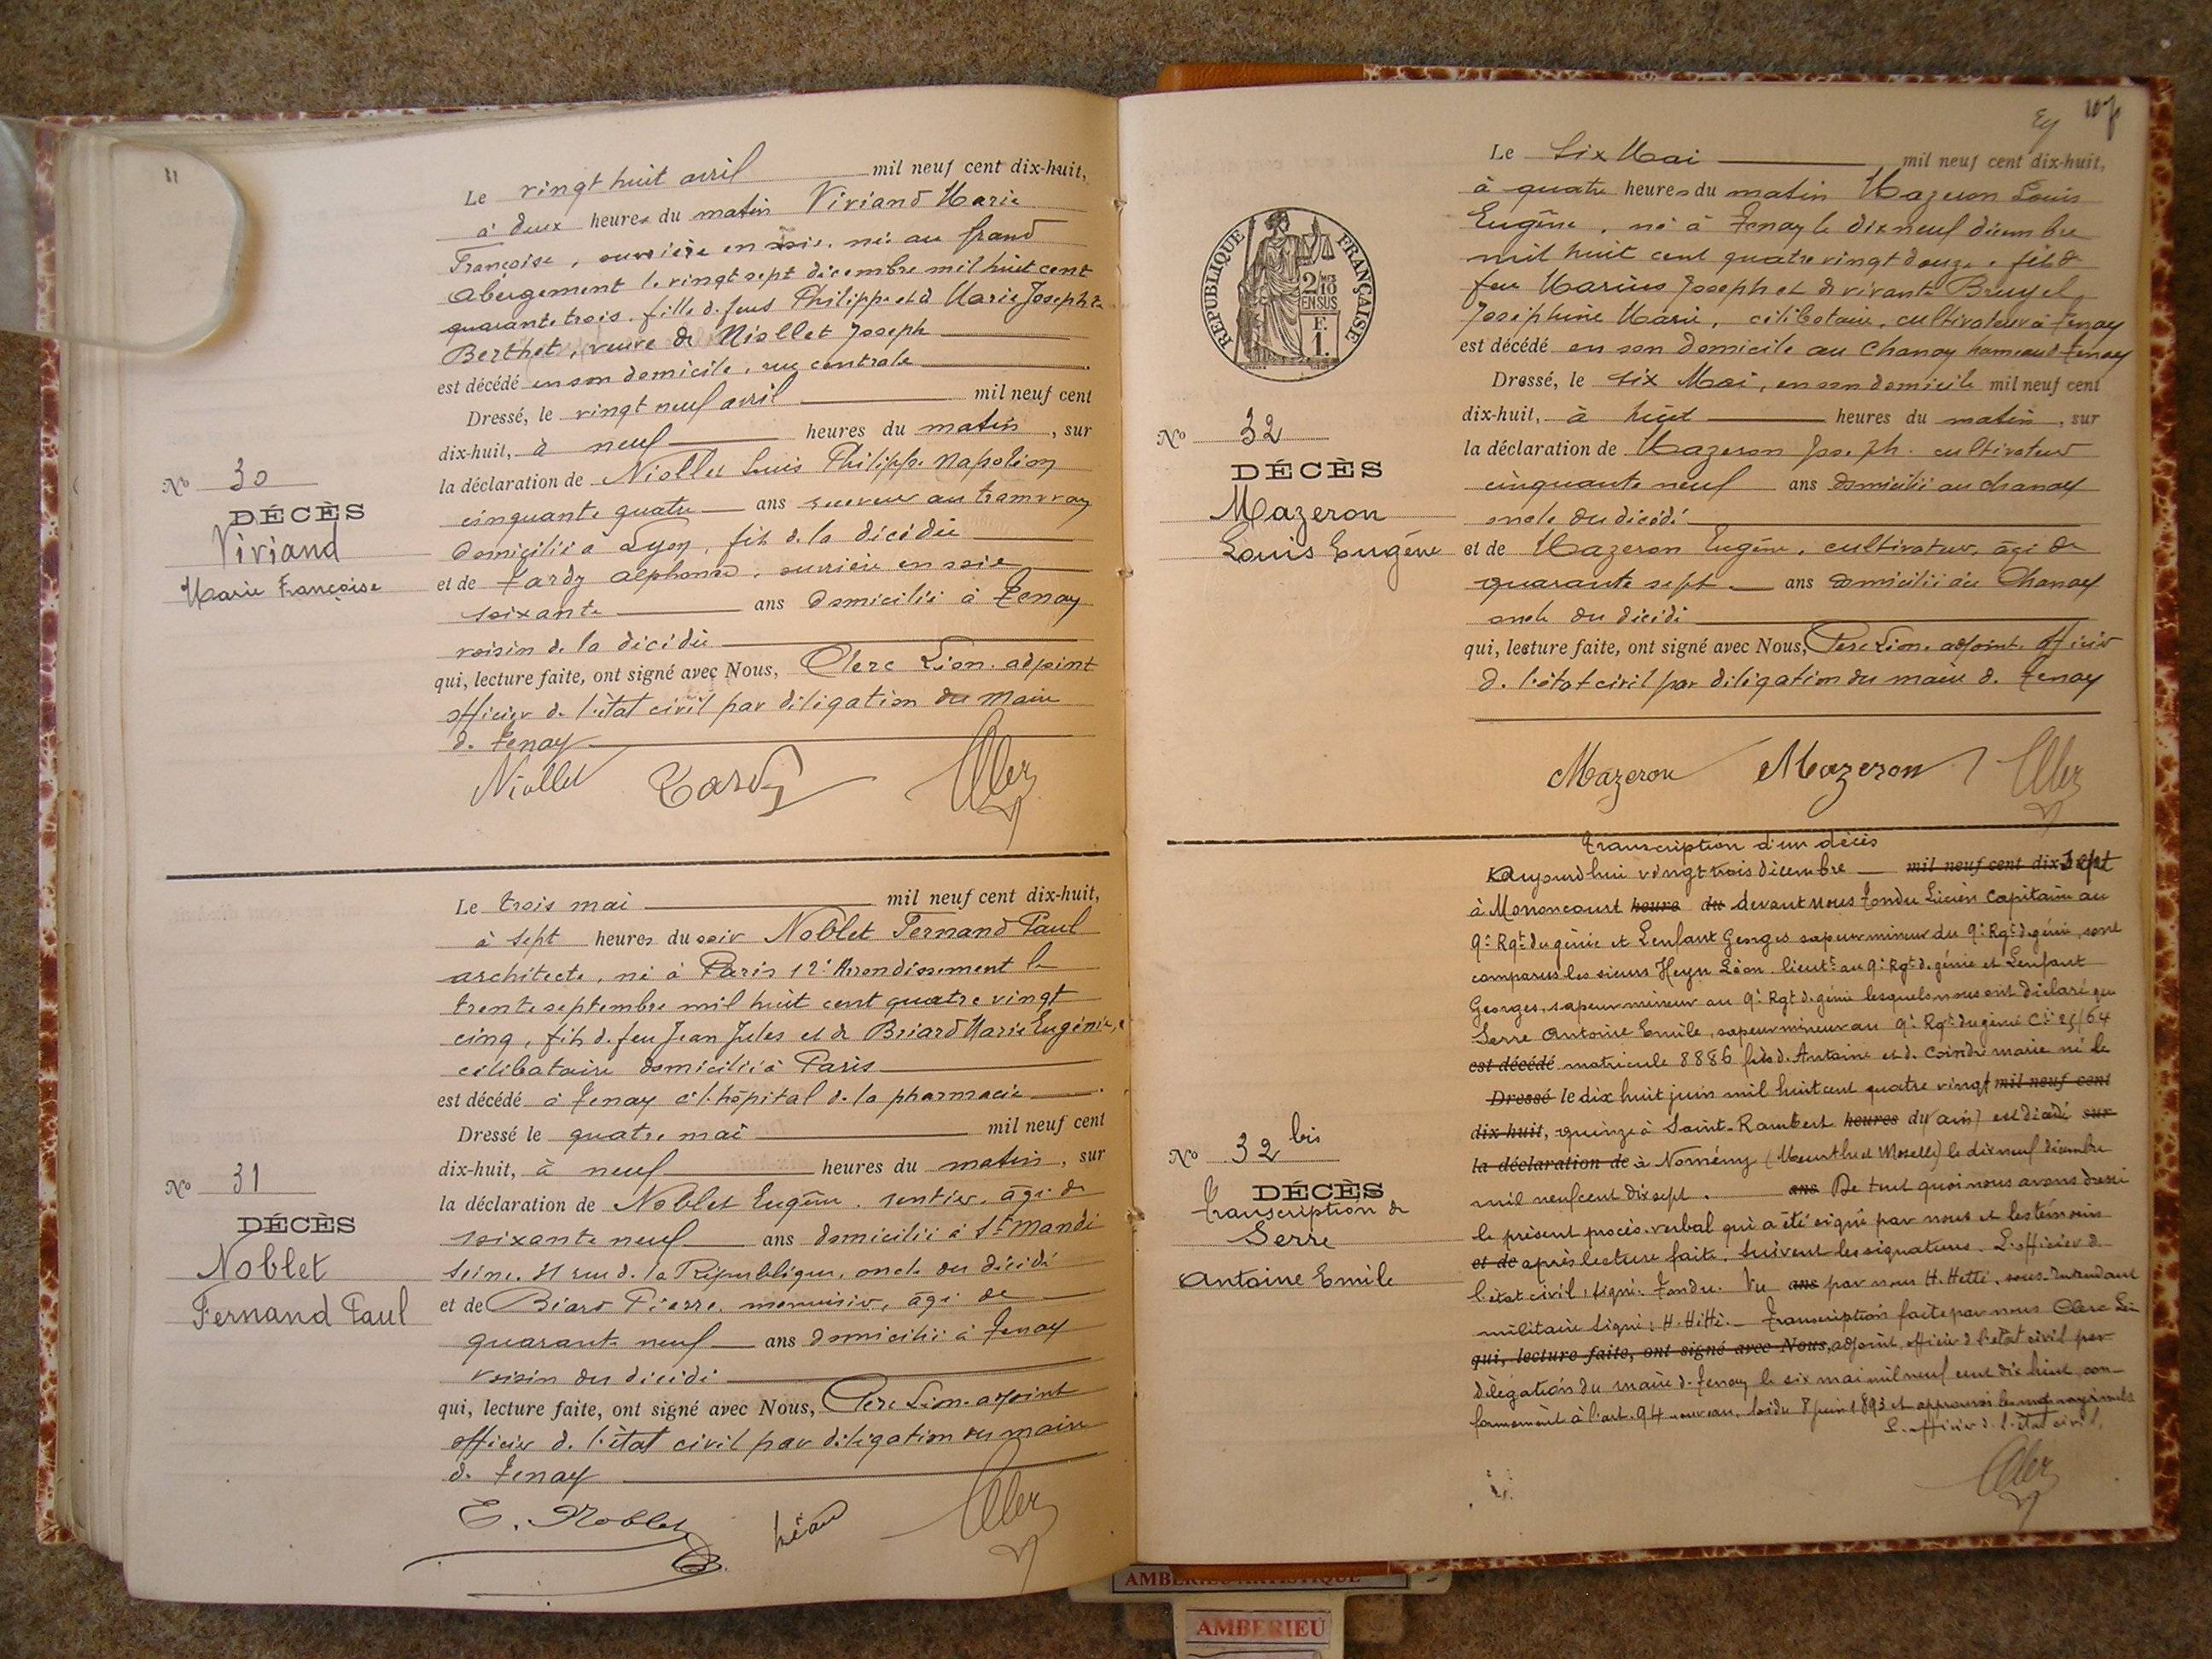 31
Le vingt huit avril mil neuf cent dix-huit,
à deux heures du matin Viviand Marie
Françoise, ouvrière en soie, née au grand
Abergement le vingt sept décembre mil huit cent
quarante trois, fille d. feus Philippe et d Marie Josephte
Berthet, veuve de Niollet Joseph
est décédé en son domicile, rue centrale
Dressé, le vingt neuf avril mil neuf cent
dix-huit, à neuf heures du matin, sur
la déclaration de Niollet Louis Philippe Napoléon
cinquante quatre ans receveur au tramway
domicilié à Lyon, fils de la décédée
et de Tardy Alphonse, ouvrier en soie
soixante ans domicilié à Tenay
voisin de la décédée
qui, lecture faite, ont signé avec Nous, Clerc Léon. adjoint
officier de l'état civil par délégation du Maire
d. Tenay
Niollet Tardy Clerc
No 30
DÉCÈS
Viviand
Marie Françoise
Le trois mai mil neuf cent dix-huit,
à sept heures du soir Noblet Fernand Paul
architecte, né à Paris 12e Arrondissement le
trente septembre mil huit cent quatre vingt
cinq, fils d. feu Jean Jules et de Briard Marie Eugénie,
célibataire domicilié à Paris
est décédé à Tenay à l'hôpital de la pharmacie
Dressé le quatre mai mil neuf cent
dix-huit, à neuf heures du matin, sur
la déclaration de Noblet Eugène. rentier. âgé de
soixante neuf ans domicilié à St Mandé
Seine. 31 rue d. la République, oncle du décédé
et de Biard Pierre, menuisier, âgé de
quarante neuf ans domicilié à Tenay
voisin du décédé
qui, lecture faite, ont signé avec Nous, Clerc Léon adjoint
officier d. l'état civil par délégation du maire
d. Tenay
E. Noblet Clerc
No 31
DÉCÈS
Noblet
Fernand Paul
107
Le six Mai mil neuf cent dix-huit,
à quatre heures du matin Mazeron Louis
Eugène, né à Tenay le dix neuf décembre
mil huit cent quatre vingt douze, fils d
feu Marius Joseph et de vivante Bruyel
Joséphine Marie, célibataire, cultivateur à Tenay
est décédé en son domicile au Chanay hameau d Tenay
Dressé, le six Mai, en son domicile mil neuf cent
dix-huit, à huit heures du matin, sur
la déclaration de Mazeron Joseph. cultivateur
cinquante neuf ans domicilié au Chanay
oncle du décédé
et de Mazeron Eugène, cultivateur, âgé de
quarante sept ans domicilié au Chanay
oncle du décédé
qui, lecture faite, ont signé avec Nous, Clerc Léon. adjoint. officier
d. l'état civil par délégation du maire d. Tenay
Mazeron Mazeron Clerc
REPUBLIQUE FRANÇAISE
2/10
EN SUS
F.
1.
No 32
DÉCÈS
Mazeron
Louis Eugène
Transcription d'un décès
Aujourd'hui vingt trois décembre mil neuf cent dix sept
à Mononcourt heure du devant nous Fondu Lucien Capitaine au
9e Rgt du génie et Lenfant Georges sapeur mineur du 9e Rgt d. génie, sont
comparus les sieurs Heyn Léon. lieutt au 9e Rgt d. génie et Lenfant
Georges, sapeur mineur au 9e Rgt d. génie lesquels nous ont déclaré que
Serre Antoine Emile, sapeur mineur au 9e Rgt du génie Cie 25/64
est décédé matricule 8886 fils d. Antoine et d. Coindre marie né le
Dressé le dix huit juin mil huit cent quatre vingt mil neuf cent
dix-huit, quinze à Saint-Rambert heures du (ain) est décédé sur
la déclaration de à Nomény (Meurthe et Moselle) le dix neuf décembre
mil neuf cent dix sept. ans De tout quoi nous avons dressé
le présent procès-verbal qui a été signé par nous et les témoins
et de après lecture faite. Suivent les signatures. L'officier d.
l'état civil, signé: Fondu. Vu ans par nous H. Hetté, sous-Intendant
militaire signé: H. Hetté. Transcription faite par nous Clerc Léon
qui, lecture faite, ont signé avec Nous, adjoint, officier d l'état civil par
délégation du maire d. Tenay le six mai mil neuf cent dix huit, con-
formément à l'art. 94 nouveau, loi du 8 juin 1893 et approuvé les mots rayés nuls
L'officier d. l'état civil,
Clerc
No 32 bis
DÉCÈS
Transcription de
Serre
Antoine Emile
AMBERIEU ARTISTIQUE
AMBERIEU